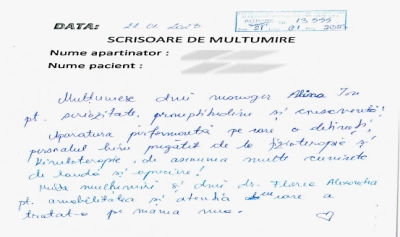 DATA: 21 01 2025
13.555
21 01 2025
SCRISOARE DE MULTUMIRE
Nume apartinator :
Nume pacient :
Multumesc dnei manager Alina Ion
pt. seriozitate, promptitudine si
Aparatura performantă pe care o detineti,
personalul bine pregatit de la fizioterapie si
Kinetoterapie, de asemenea multe cuvinte
de laudă si apreciere!
Multe multumiri si dnei dr. Florea Alexandra
pt. amabilitatea si atentia cu care a
tratat-o pe mama mea.